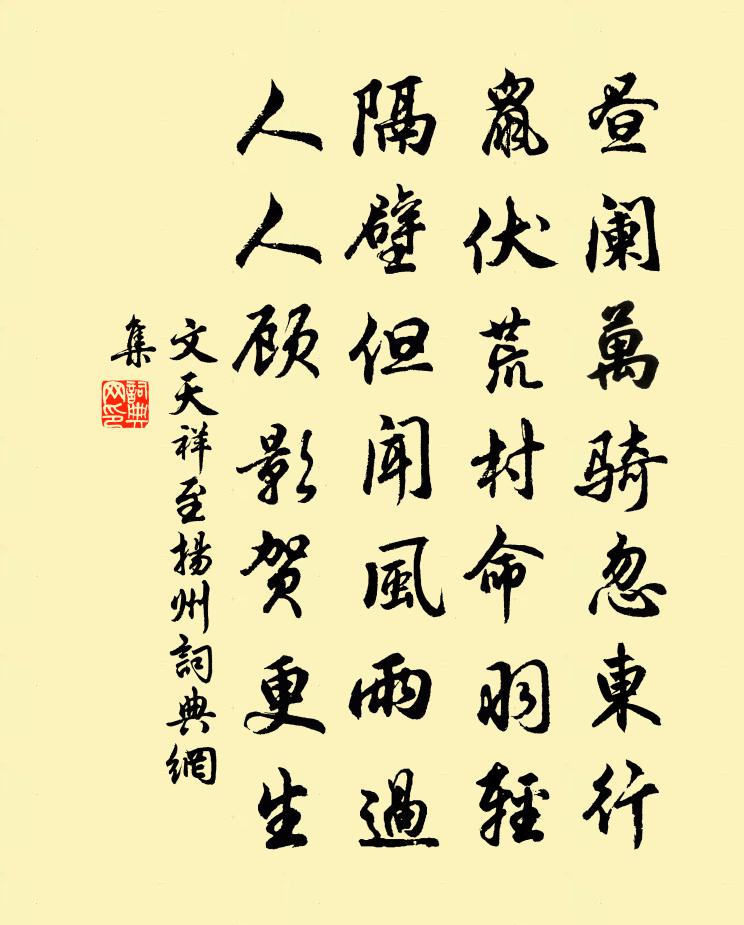 昼阑萬骑忽東行
鼠伏荒村命羽輕
隔壁但闻風雨過
人人顾影贺更生
文天祥至揚州詞典網
集
詞典网印